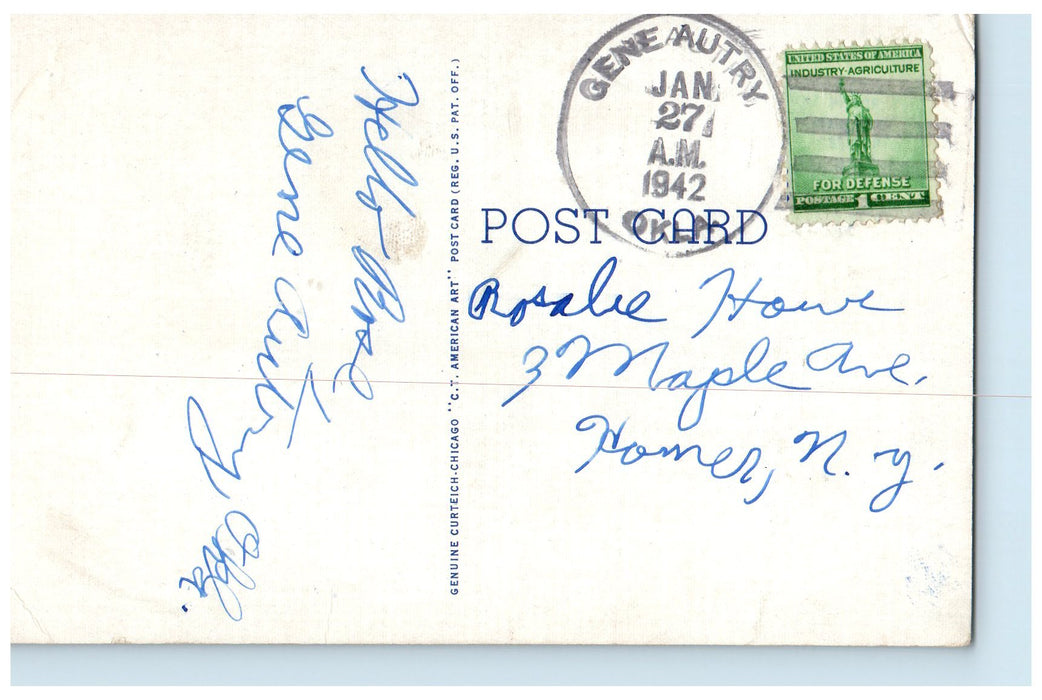 Hello Rose
Gene Autry Okla.
GENUINE CURTEICH-CHICAGO "C.T. AMERICAN ART" POST CARD (REG. U.S. PAT. OFF.)
GENE AUTRY
JAN
27
A.M.
1942
OKLA
UNITED STATES OF AMERICA
INDUSTRY·AGRICULTURE
FOR DEFENSE
POSTAGE 1 CENT
POST CARD
Rosalie Howe
3 Maple Ave.
Homer, N. Y.